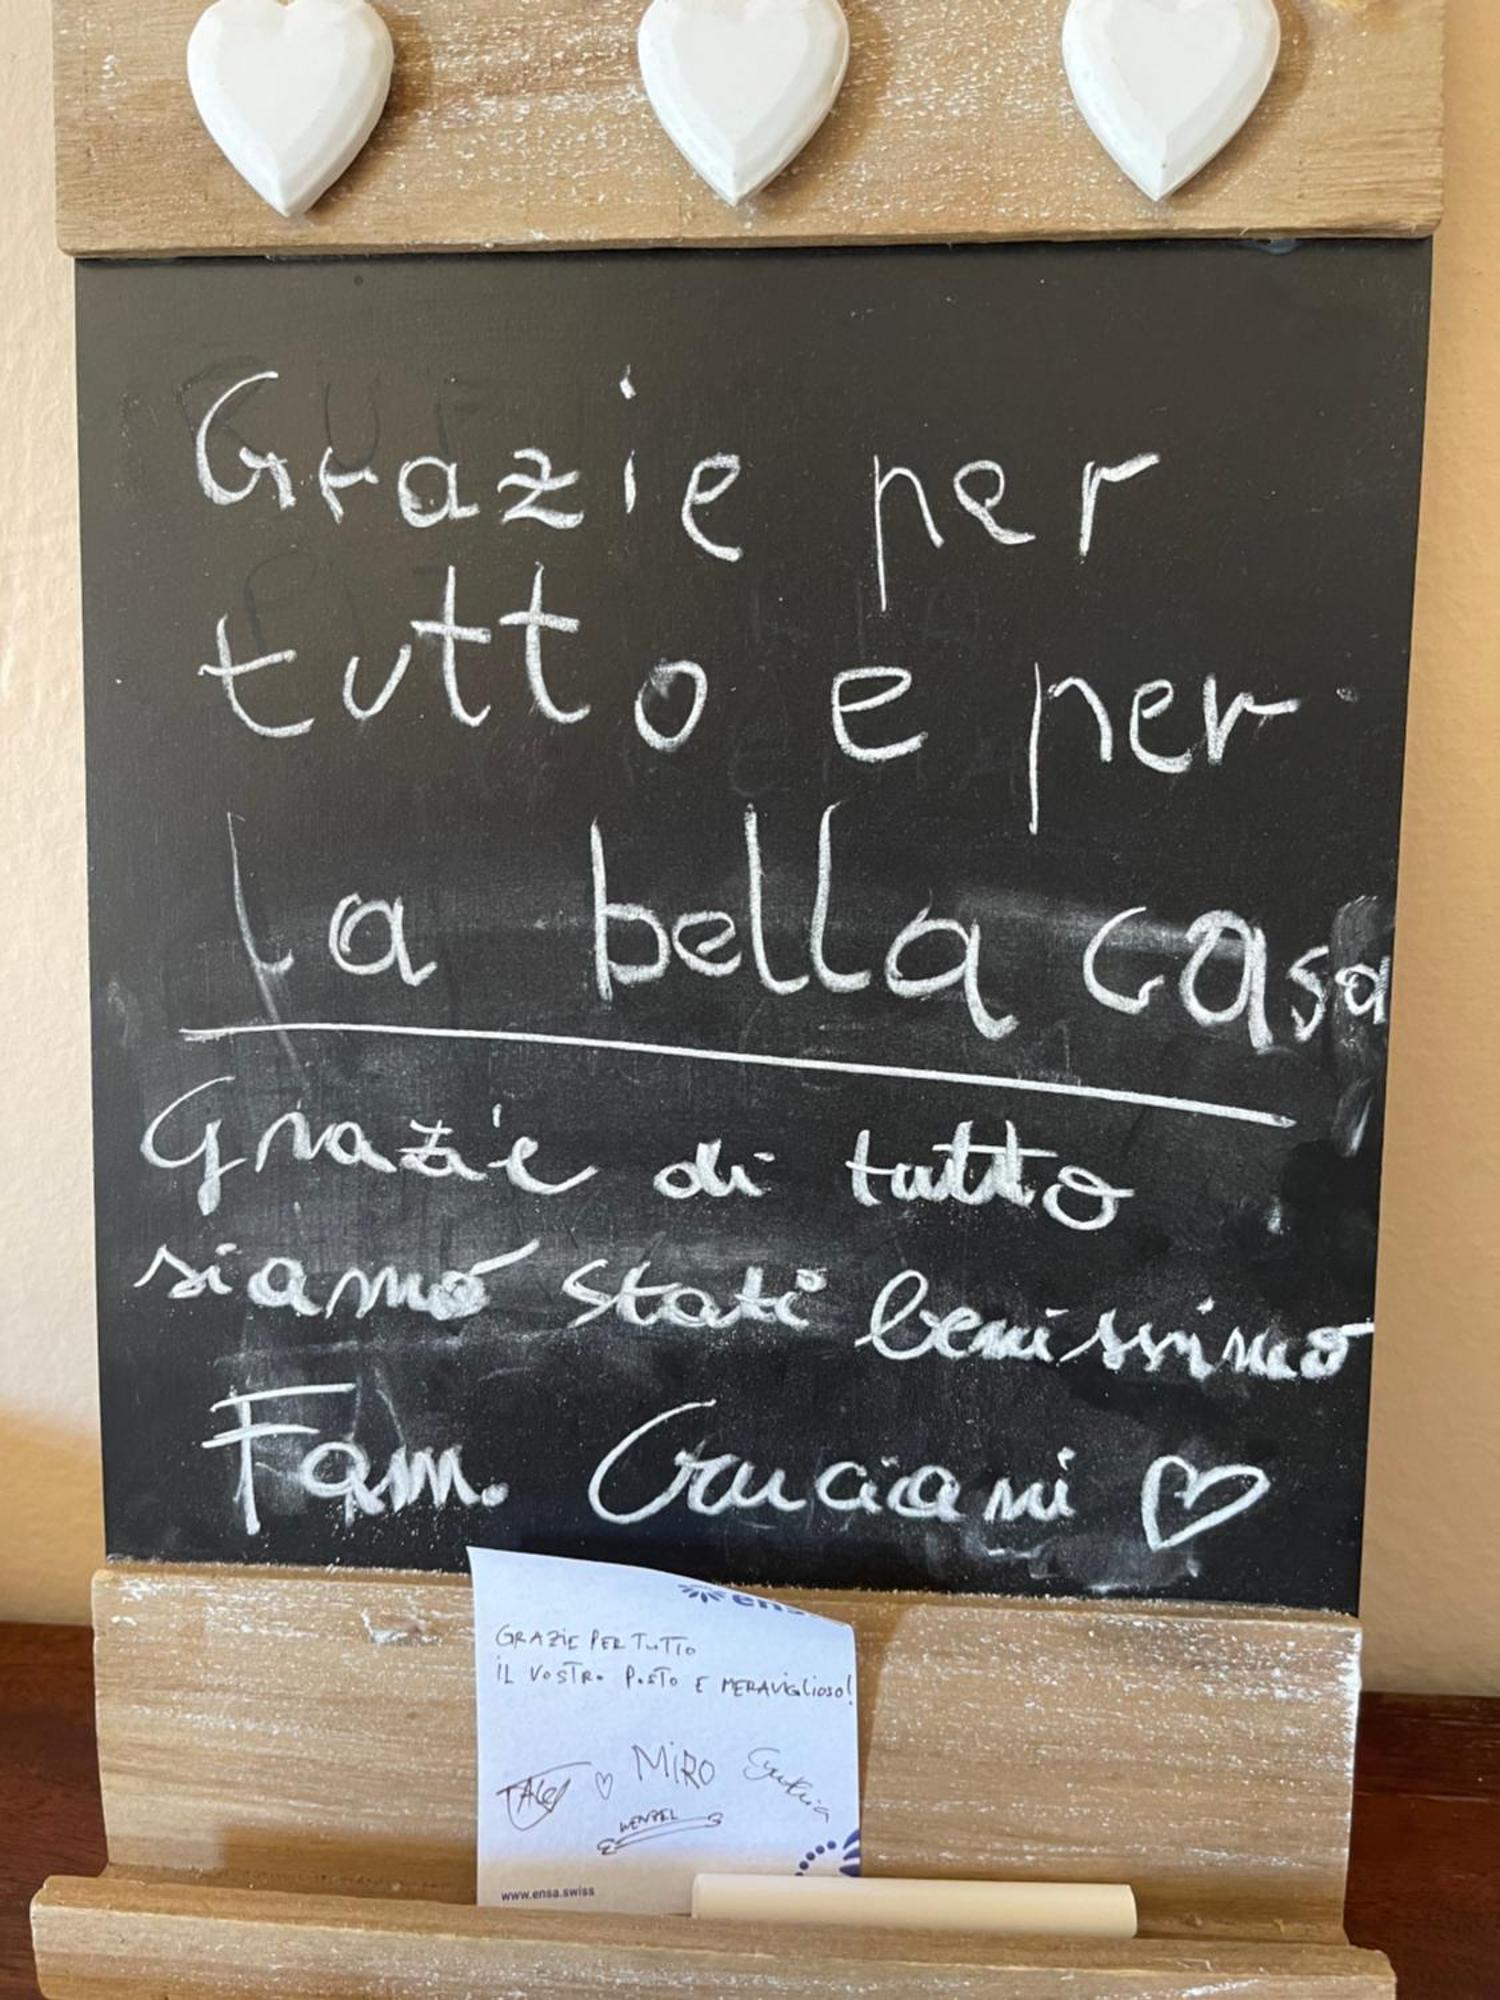 Grazie per
tutto e per
la bella casa
Grazie di tutto
siamo stati benissimo
Fam. Cruciani ♡
GRAZIE PER TUTTO
IL VOSTRO POSTO E MERAVIGLIOSO!
♡ MIRO
WENZEL
www.ensa.swiss